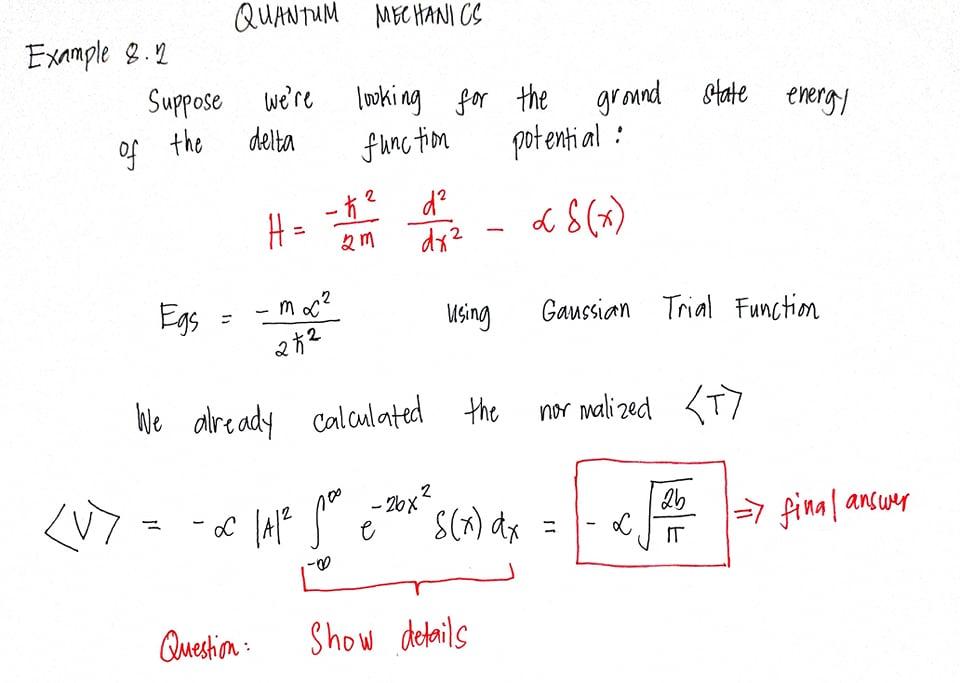 QUANTUM MECHANICS
Example 8.2
Suppose we're looking for the ground state energy
of the delta function potential:
H = -ħ²/2m d²/dx² - α δ(x)
Egs = -mα²/2ħ² Using Gaussian Trial Function
We already calculated the normalized ⟨T⟩
⟨V⟩ = -α |A|² ∫_{-∞}^{∞} e^{-2bx²} δ(x) dx = -α √(2b/π) ⇒ final answer
Question: Show details